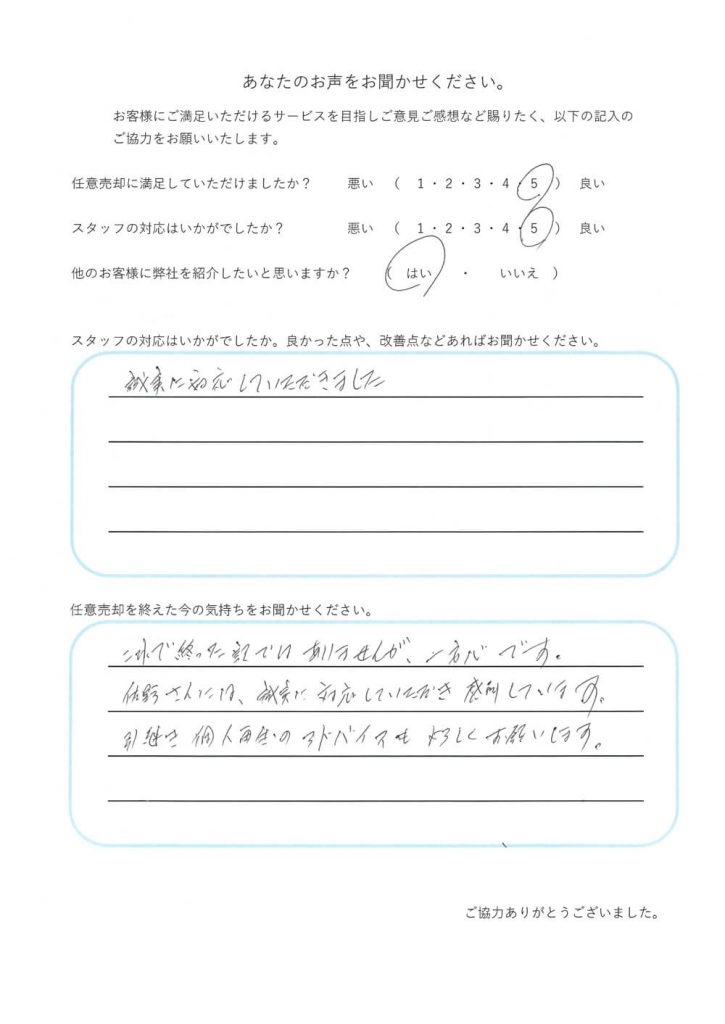 あなたのお声をお聞かせください。
お客様にご満足いただけるサービスを目指しご意見ご感想など賜りたく、以下の記入の
ご協力をお願いいたします。
任意売却に満足していただけましたか？ 悪い （ 1・2・3・4・5 ） 良い
スタッフの対応はいかがでしたか？ 悪い （ 1・2・3・4・5 ） 良い
他のお客様に弊社を紹介したいと思いますか？ （ はい ・ いいえ ）
スタッフの対応はいかがでしたか。良かった点や、改善点などあればお聞かせください。
誠実に対応していただきました
任意売却を終えた今の気持ちをお聞かせください。
これで終った訳ではありませんが、一安心です。
佐野さんには、誠実に対応していただき感謝しています。
引継き個人再生のアドバイスも宜しくお願いします。
ご協力ありがとうございました。